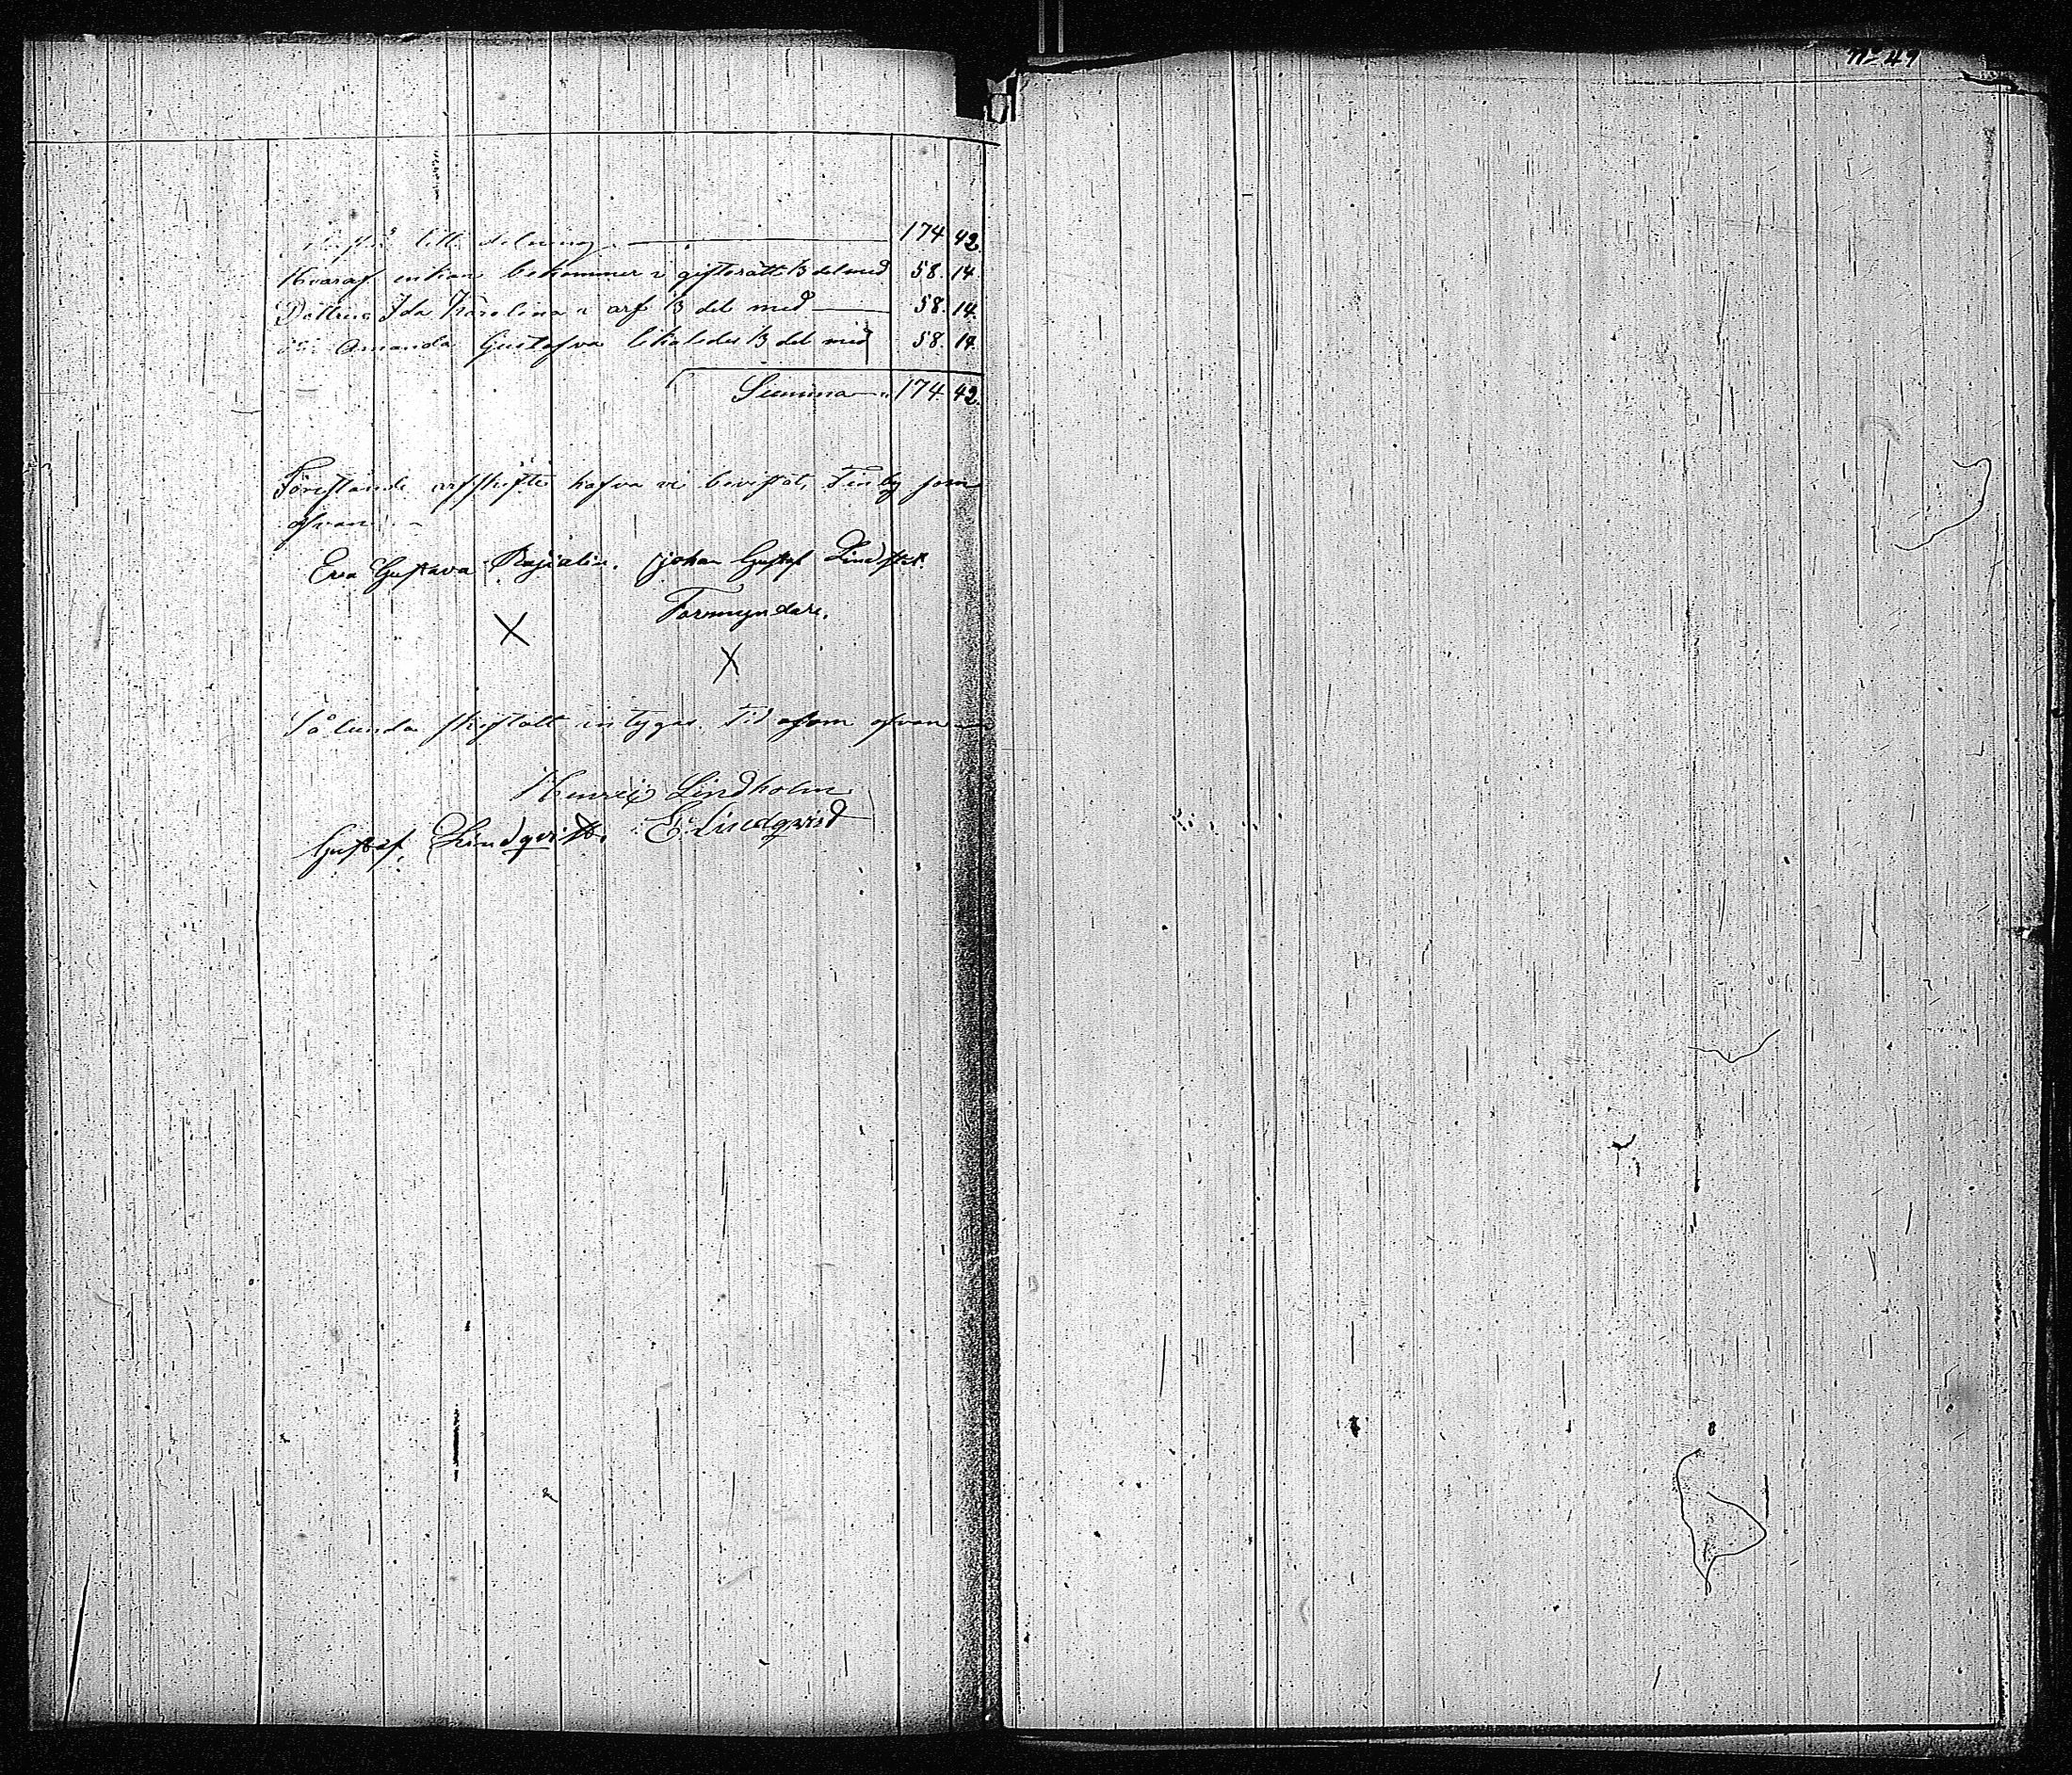 till delning 174 42.
Hvaraf enkan bekommer i giftorätt 1/3 del med 58. 14.
Dottren Ida Karolina i arf 1/3 del med 58. 14.
Amanda Gustafva likaledes 1/3 del med 58. 14.
Summa 174 42.
Förestående arfskifte hafva vi bevistat, som
ofvan.
Eva Gustava Johan Gustaf
Formyndare.
X
X
Sålunda skiftatt intygas. Tid som ofvan
Henrik Lindholm
Gustaf Lindqvist. E. Lindqvist
No 47